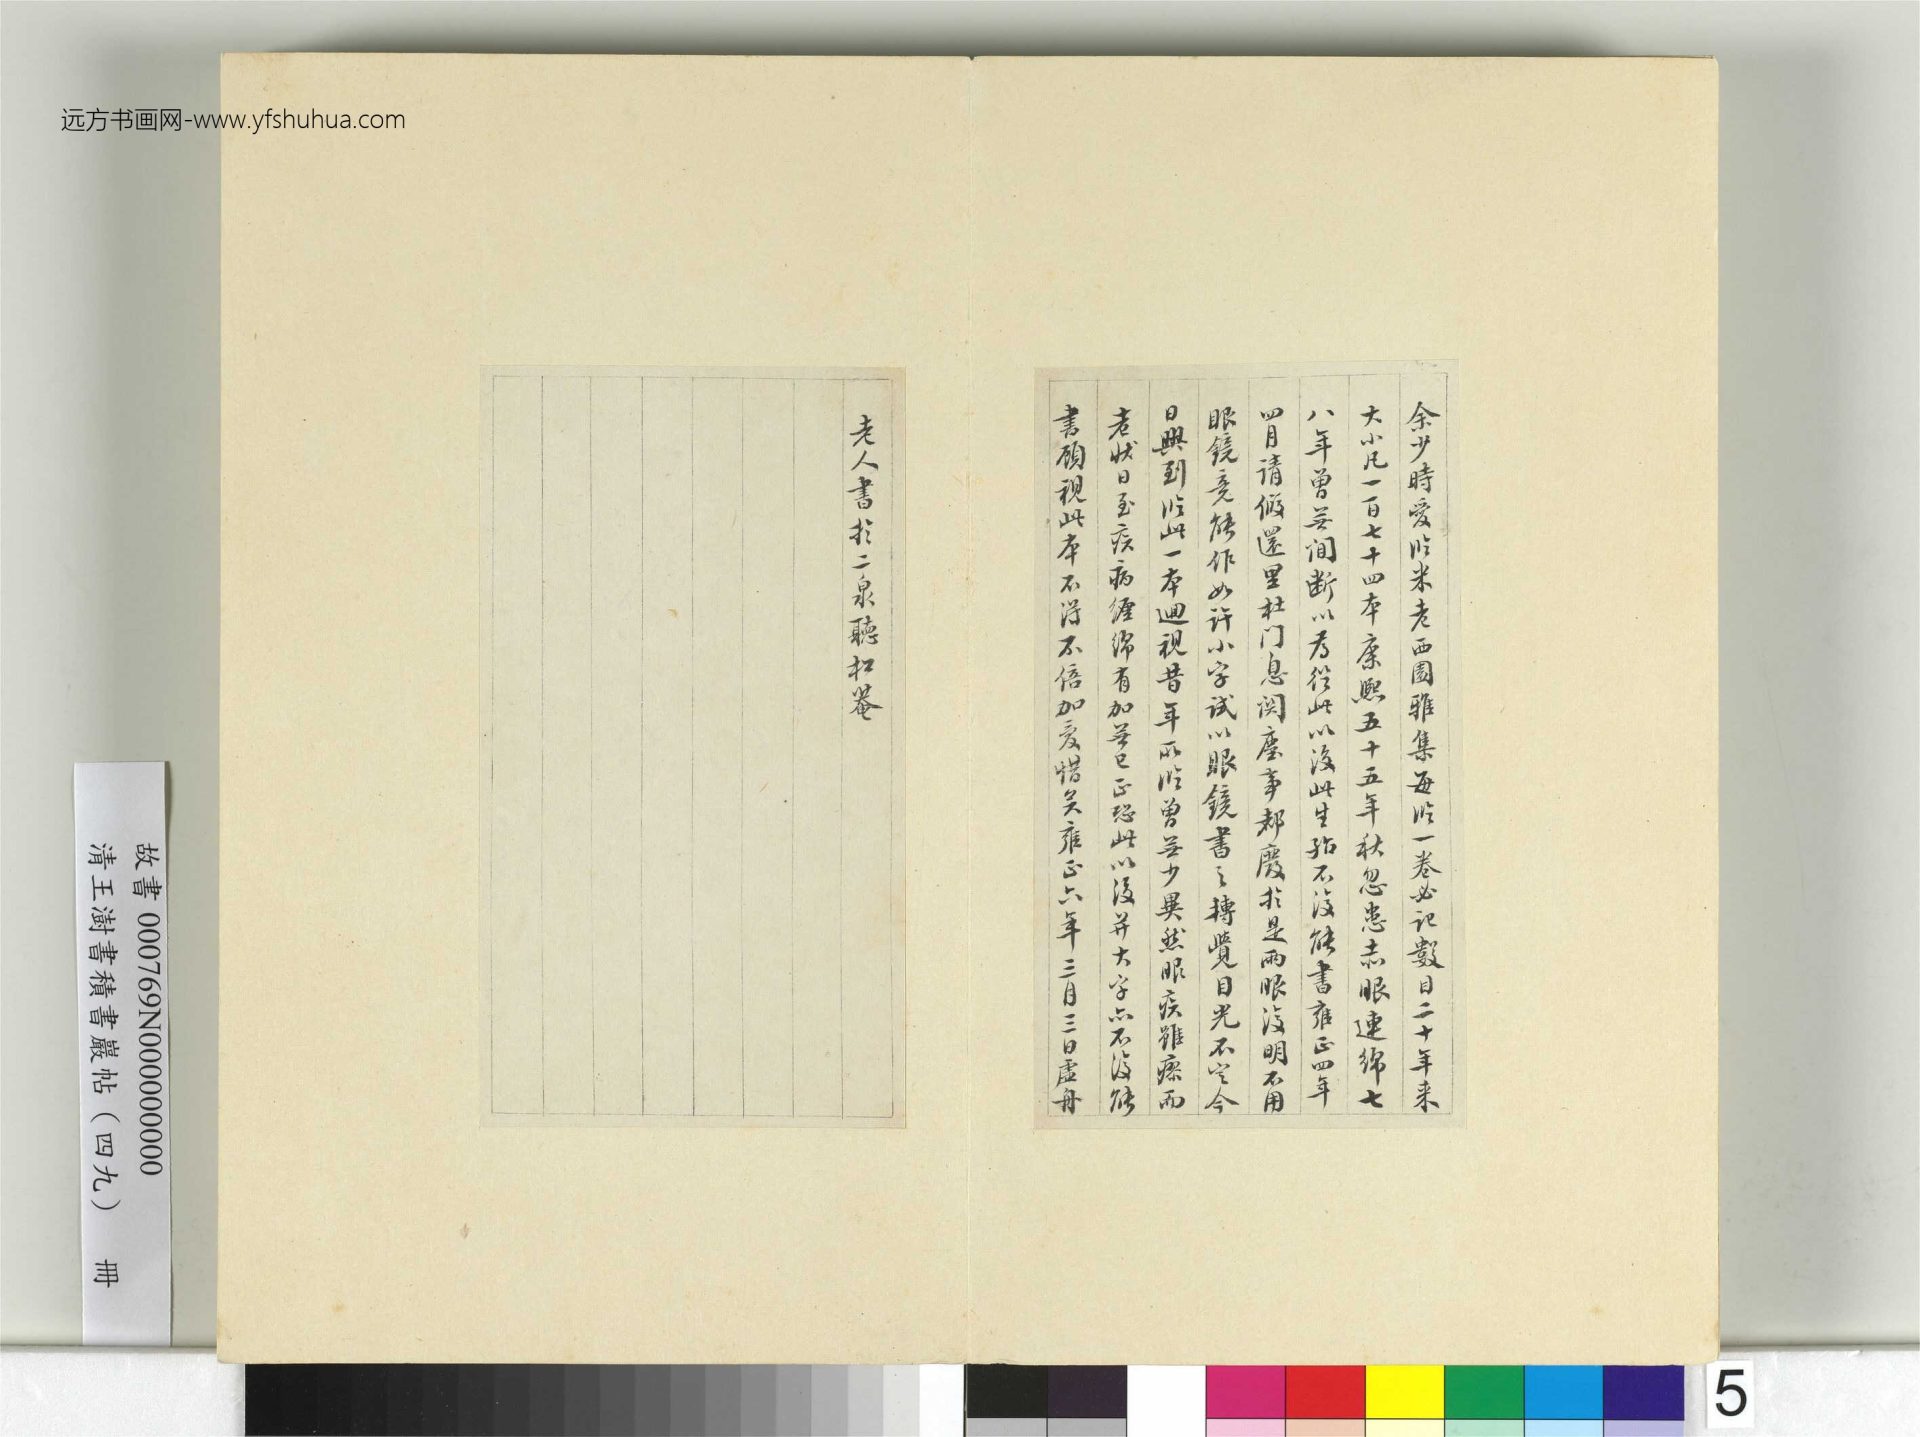 远方书画网-www.yfshuhua.com
余少時愛临米老西園雅集每临一卷必記數目二十年来
大小凡一百七十四本康熙五十五年秋忽患赤眼連綿七
八年曾无间断以为從此以後此生殆不復能書雍正四年
四月請假還里杜门息関塵事都廢於是兩眼復明不用
眼鏡竟能作如许小字試以眼鏡書之轉覺目光不定今
日興到临此一本迴視昔年所临曾无少異然眼疾雖瘳而
老狀日至疾病纏綿有加无已正恐此以後并大字亦不復能
書顧視此本不得不倍加爱惜矣雍正六年三月三日虛舟
老人書於二泉聽松菴
故書 000769N000000000
清王澍書積書巖帖（四九） 冊
5